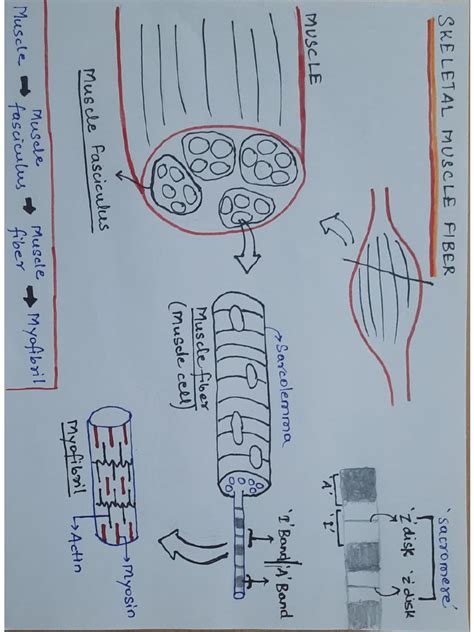 SKELETAL MUSCLE FIBER
'sacromere'
'z' disk
'z' disk
'A'
'I'
MUSCLE
Sarcolemma
'I' Band/'A' Band
Muscle fiber
(Muscle cell)
Muscle fasciculus
Myosin
Actin
Myofibril
Muscle → Muscle fasciculus → Muscle fiber → Myofibril